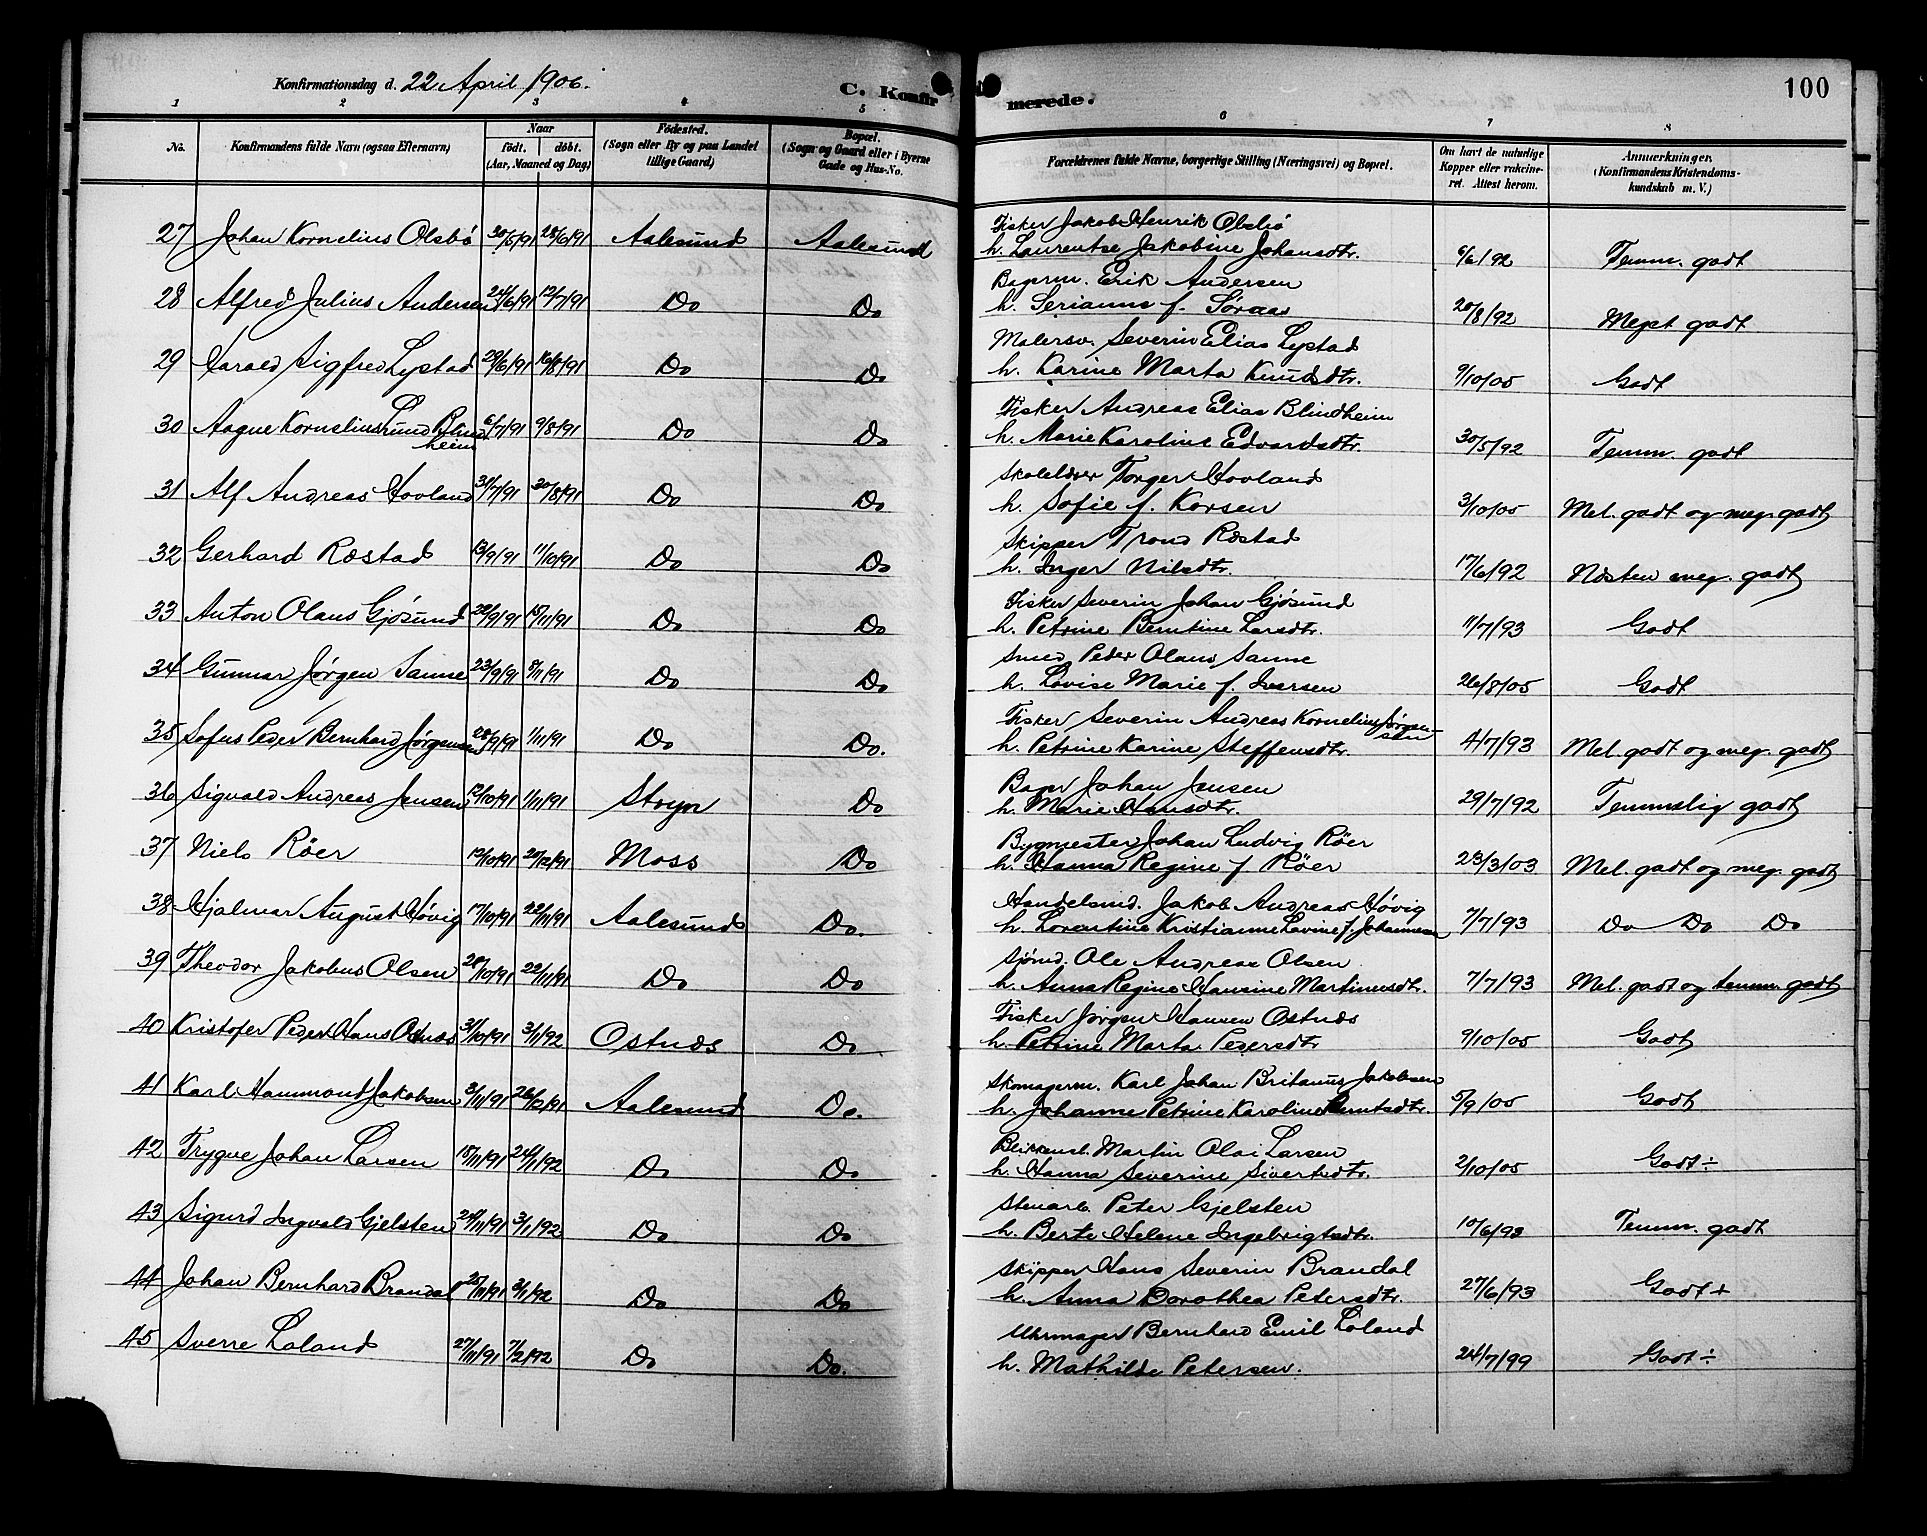 Konfirmationsdag d. 22 April 1906.
C. Konfirmerede.
100
1 2 3 4 5 6 7 8
No. Konfirmandens fulde Navn (ogsaa Efternavn) Naar født. døbt. (Aar, Maaned og Dag) Fødested. (Sogn eller By og paa Landet tillige Gaard) Bopæl. (Sogn og Gaard eller i Byerne Gade og Hus-No. Forældrenes fulde Navne, borgerlige Stilling (Næringsvei) og Bopæl. Om havt de naturlige Kopper eller vakcineret. Attest herom. Anmærkninger. (Konfirmandens Kristendomskundskab m. V.)
27 Johan Kornelius Olsbø 30/5/91 28/6/91 Aalesund Aalesund Fisker Jakob Henrik Olsbø
h. Laurentse Jakobine Johansdtr. 6/6/92 Temm. godt
28 Alfred Julius Andersen 24/6/91 12/7/91 Do Do Bagerm. Erik Andersen
h. Serianne f. Søraas 20/8/92 Meget godt
29 Harald Sigfred Lystad 29/6/91 16/8/91 Do Do Malersv. Severin Elias Lystad
h. Karine Marta Knudsdtr. 9/10/05 Godt
30 Aagne Kornelius Lund Blindheim 6/7/91 9/8/91 Do Do Fisker Andreas Elias Blindheim
h. Marie Karoline Edvardsdtr. 30/5/92 Temm. godt
31 Alf Andreas Hovland 31/7/91 30/8/91 Do Do Skolelærer Torger Hovland
h. Sofie f. Korsen 3/10/05 Mel. godt og meg. godt
32 Gerhard Ræstad 13/9/91 11/10/91 Do Do Skipper Trond Ræstad
h. Inger Nilsdtr. 17/6/92 Næsten meg. godt
33 Anton Olaus Gjøsund 22/9/91 15/11/91 Do Do Fisker Severin Johan Gjøsund
h. Petrine Berntine Larsdtr. 11/7/93 Godt
34 Gunnar Jørgen Sanne 23/9/91 8/11/91 Do Do Smed Peder Olaus Sanne
h. Lovise Marie f. Iversen 26/8/05 Godt
35 Sofus Peder Bernhard Jørgensen 28/9/91 1/11/91 Do Do. Fisker Severin Andreas Kornelius Jørgensen
h. Petrine Karine Steffensdtr. 4/7/93 Mel. godt og meg. godt
36 Sigvald Andreas Jensen 12/10/91 1/11/91 Stryn Do Bager Johan Jensen
h. Marie Hansdtr. 29/7/92 Temmelig godt
37 Niels Røer 12/10/91 20/12/91 Moss Do Bygmester Johan Ludvig Røer
h. Hanna Regine f. Røer 23/3/03 Mel. godt og meg. godt
38 Hjalmar August Høvig 17/10/91 22/11/91 Aalesund Do. Handelsmd. Jakob Andreas Høvig
h. Lorentine Kristianne Lovine f. Johannesen 7/7/93 Do Do Do
39 Theodor Jakobus Olsen 20/10/91 22/11/91 Do Do Sjømd. Ole Andreas Olsen
h. Anna Regine Hansine Martinusdtr. 7/7/93 Mel. godt og temm. godt
40 Kristofer Peder Hans Ostnæs 31/10/91 3/1/92 Ostnæs Do Fisker Jørgen Hansen Ostnæs
h. Petrine Marta Pedersdtr 9/10/05 Godt
41 Karl Hammond Jakobsen 3/11/91 26/12/91 Aalesund Do. Skomagerm. Karl Johan Britanus Jakobsen
h. Johanne Petrine Karoline Berntsdtr. 5/9/05 Godt
42 Trygve Johan Larsen 18/11/91 24/1/92 Do Do Blikkensl. Martin Olai Larsen
h. Hanna Severine Sivertsdtr. 2/10/05 Godt÷
43 Sigurd Ingvald Gjelsten 20/11/91 3/1/92 Do Do Stuearb. Peter Gjelsten
h. Berte Helene Ingebrigtsdtr. 10/6/93 Temm. godt
44 Johan Bernhard Brandal 25/11/91 3/1/92 Do Do Skipper Hans Severin Brandal
h. Anna Dorothea Petersdtr. 27/6/93 Godt+
45 Sverre Loland 27/11/91 7/2/92 Do Do. Uhrmager Bernhard Emil Loland
h. Mathilde Petersen. 24/7/99 Godt÷